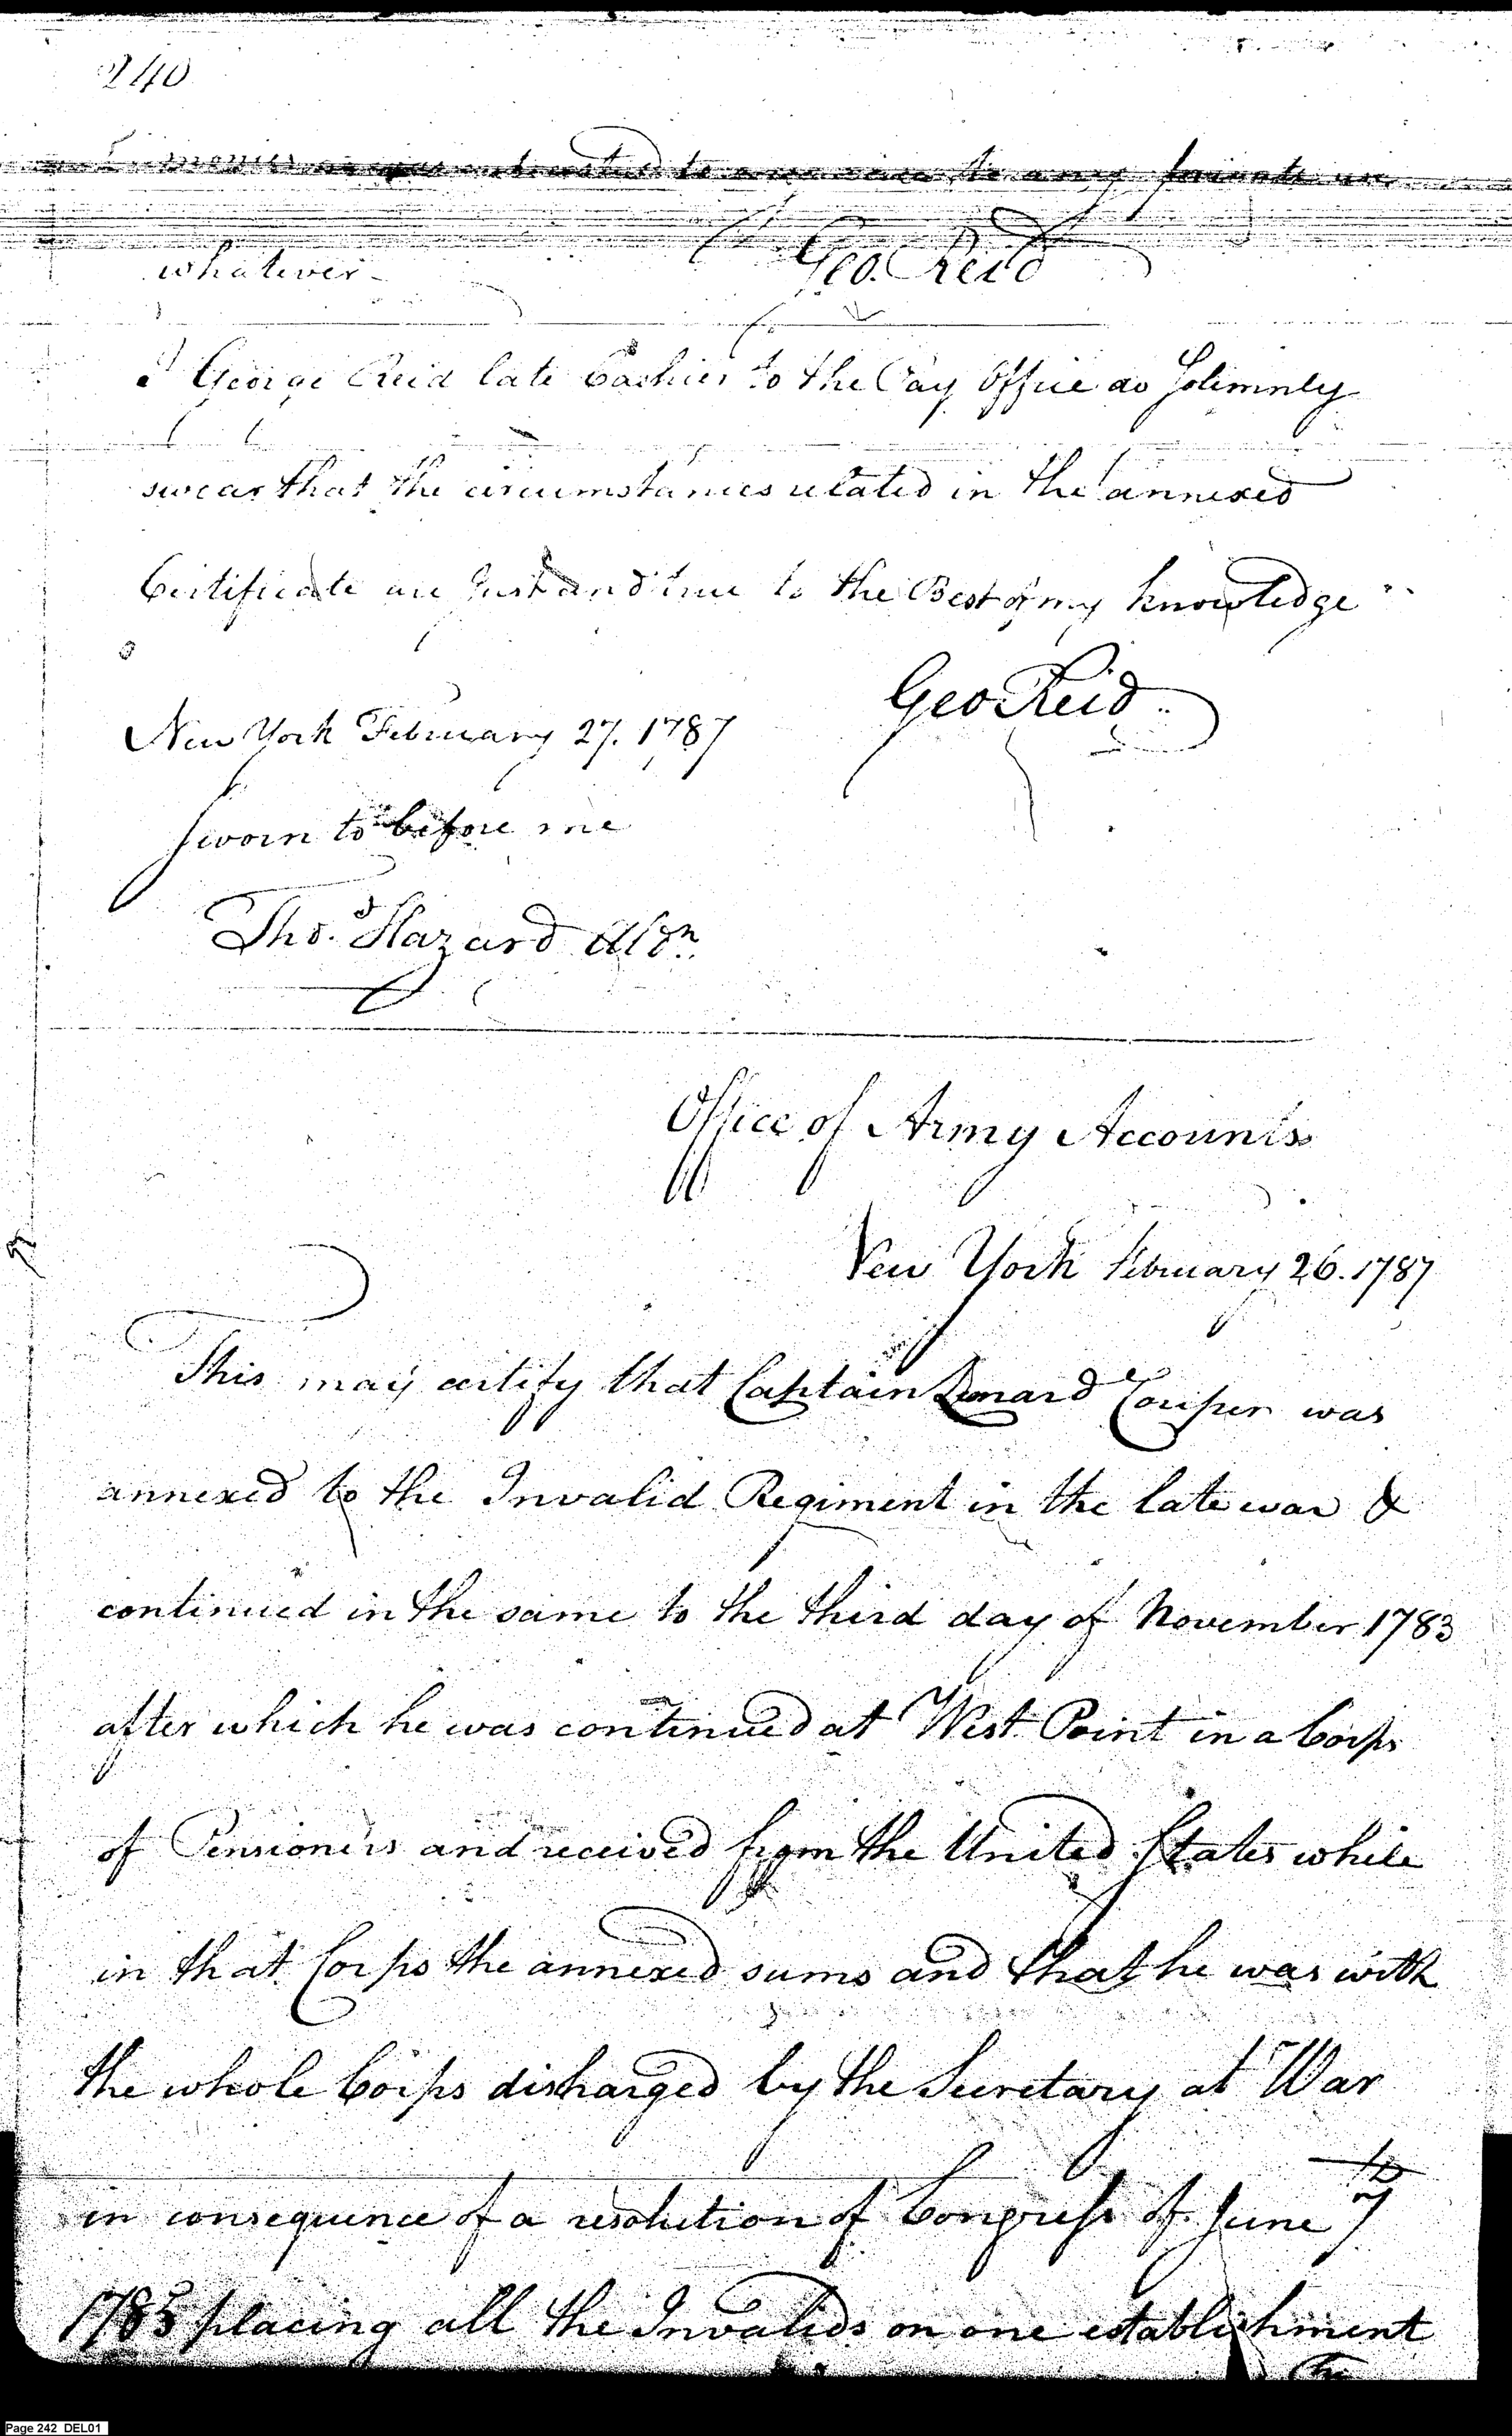 240
monies as was intrusted to my care to any private use
whatever - Geo. Reid
I George Reid late Cashier to the Pay Office do Solemnly
swear that the circumstances related in the annexed
Certificate are Just and true to the Best of my knowledge
Geo Reid
New York February 27. 1787
Sworn to before me
Tho.s Hazard Aldn.
Office of Army Accounts
New York February 26. 1787
This may certify that Captain Lenard Couper was
annexed to the Invalid Regiment in the late war &
continued in the same to the third day of November 1783
after which he was continued at West Point in a Corps
of Pensioners and received from the United States while
in that Corps the annexed sums and that he was with
the whole Corps discharged by the Secretary at War
in consequence of a resolution of Congress of June 7th
1785 placing all the Invalids on one establishment
The
Page 242 DEL01